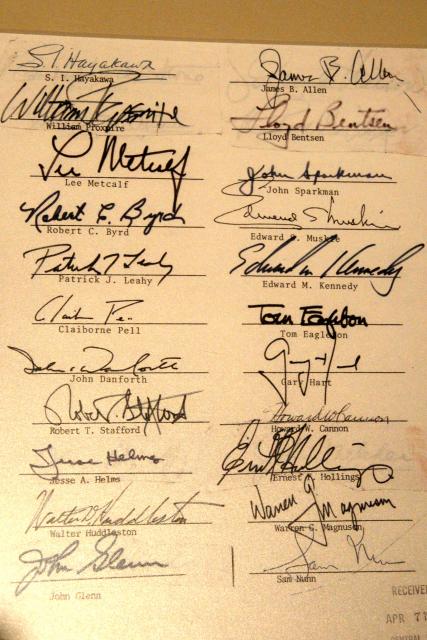 S. I. Hayakawa
S. I. Hayakawa
William Proxmire
William Proxmire
Lee Metcalf
Lee Metcalf
Robert C. Byrd
Robert C. Byrd
Patrick J. Leahy
Patrick J. Leahy
Claiborne Pell
Claiborne Pell
John Danforth
John Danforth
Robert T. Stafford
Robert T. Stafford
Jesse Helms
Jesse A. Helms
Walter D Huddleston
Walter Huddleston
John Glenn
John Glenn
James B. Allen
James B. Allen
Lloyd Bentsen
Lloyd Bentsen
John Sparkman
John Sparkman
Edmund S Muskie
Edward S. Muskie
Edward M Kennedy
Edward M. Kennedy
Tom Eagleton
Tom Eagleton
Gary Hart
Gary Hart
Howard W Cannon
Howard W. Cannon
Ernest F Hollings
Ernest F. Hollings
Warren G Magnuson
Warren G. Magnuson
Sam Nunn
Sam Nunn
RECEIVED
APR 77